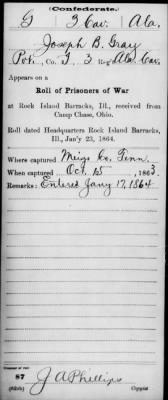 (Confederate.)
G 3 Cav. Ala.
Joseph B. Gray
Pvt, Co. G 3 Reg't Ala. Cav.
Appears on a
Roll of Prisoners of War
at Rock Island Barracks, Ill., received from
Camp Chase, Ohio.
Roll dated Headquarters Rock Island Barracks,
Ill., Jan'y 23, 1864.
Where captured Meigs Co. Tenn
When captured Oct. 15, 1863.
Remarks: Entered Jany 17, 1864
Number of roll:
87
J A Phillips
Copyist.